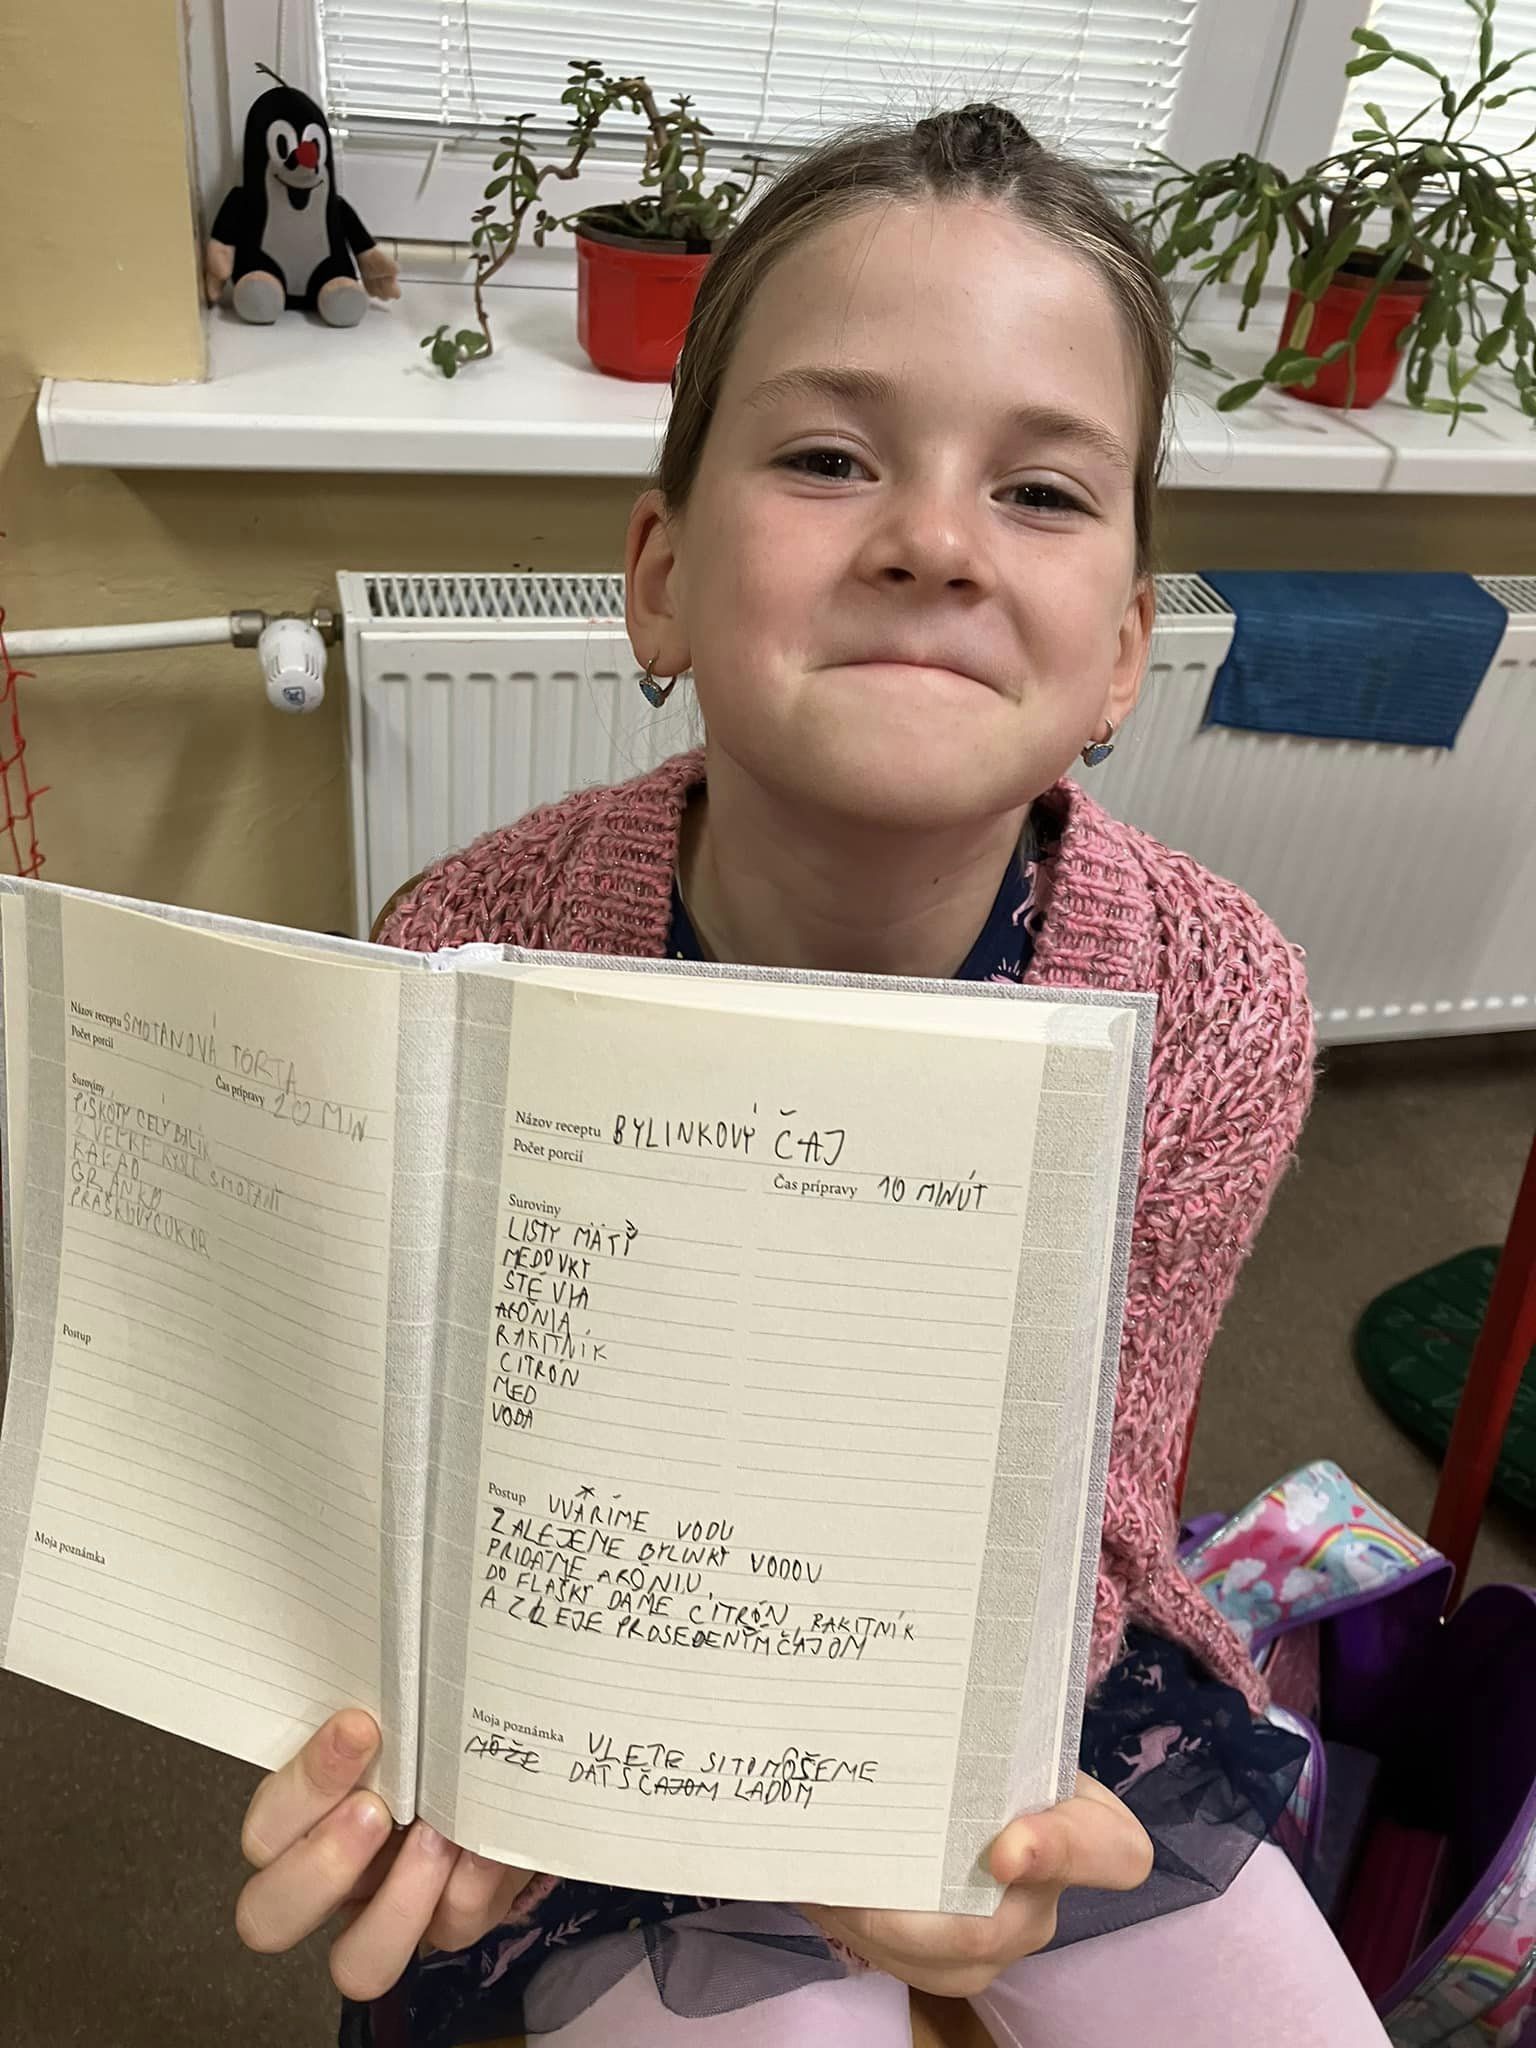 Názov receptu SMOTANOVÁ TORTA
Počet porcií
Čas prípravy 20 MIN
Suroviny
PIŠKÓTY CELÝ BALÍK
2 VEĽKÉ KYSLÉ SMOTANY
KAKAO
GRANKO
PRÁŠKOVÝ CUKOR
Postup
Moja poznámka
Názov receptu BYLINKOVÝ ČAJ
Počet porcií
Čas prípravy 10 MINÚT
Suroviny
LISTY MÄTY
MEDOVKY
STÉVIA
ARÓNIA
RAKITNÍK
CITRÓN
MED
VODA
Postup UVARÍME VODU
ZALEJEME BYLINKY VODOU
PRIDÁME ARÓNIU,
DO FLAŠKY DÁME CITRÓN, RAKITNÍK
A ZALEJE PROSEDENÝM ČAJOM
Moja poznámka V LETE SI TO MÔŠEME
MÔŽE DAŤ S ČAJOM LADOM